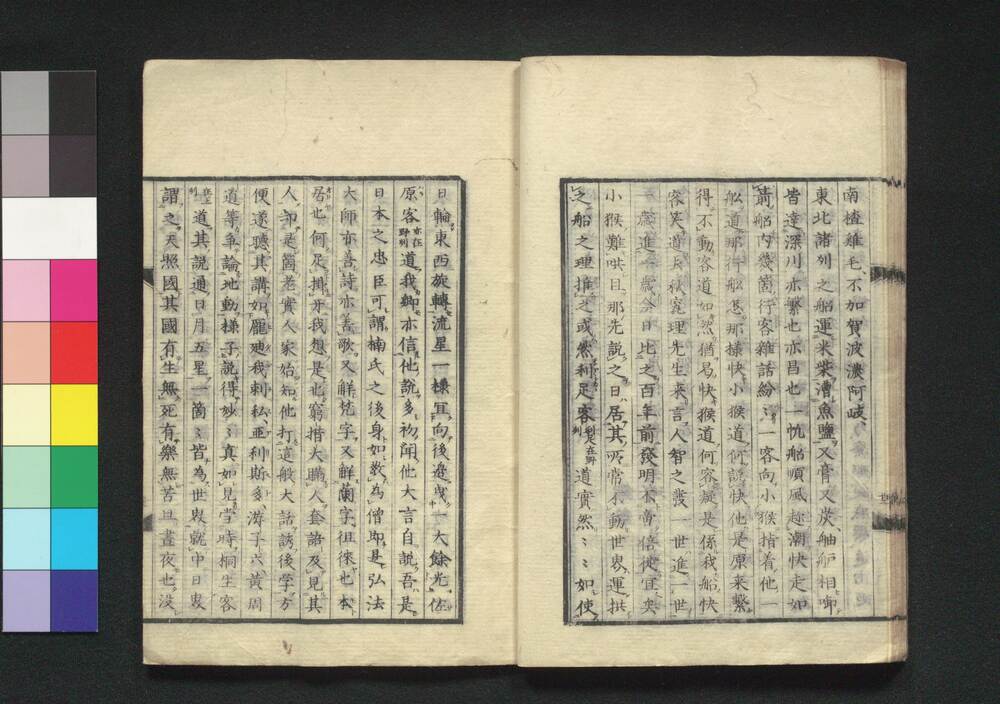 南楂雞毛、不加賀波濃阿岐、
東北諸列之船運米柴漕魚鹽又膏又炭舳舮相啣
皆達深川亦繁也亦昌也一帆船順風趁潮快走如
箭船內幾箇行客雜話紛〻一客向小猴指着他一
舩道那行舩恁那樣快小猴道何話快他是原来繫
得不動客道如然猶易快猴道何容凝是係我船快
客笑道夫秋窕理先生来言人智之發一世進一世
一歲進一歲今日比之百年前發明不啻倍徙宜矣
小猴難哄且那先說之曰居其所常不動世界運拱
之船之理推之或然利足客道實然〻〻如使
日輪東西旋轉流星一樣宜向後邊曳一大餘光佐
原客道我鄉亦信他說多初聞他大言自說吾是
日本之忠臣可謂楠氏之後身如敎為僧即是弘法
大師亦善詩亦善歌又觧梵字又觧蘭字徂徠也本
居也何足掛牙我想是也窮措大瞞人套語及見其
人却是箇老實人家始知他打這般大話誘後学方
便遂聽其講如龐廸我利私亞利斯多游子六黃周
道等爭論地動樣子說得妙〻真如見当時桐生客
道其說通日月五星一箇〻皆為世界就中日界
謂之天照國其國有生無死有樂無苦且晝夜也沒